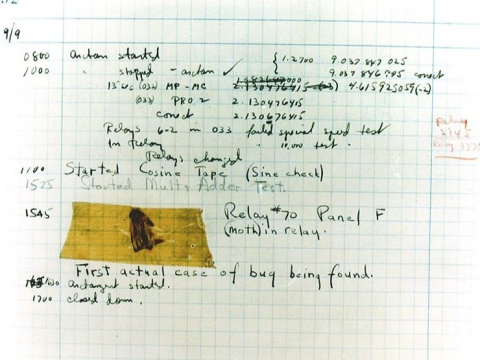 9/9
0800 Antan started { 1.2700 9.037 847 025
1000 " stopped - antan ✓ 9.037 846 995 conect
13"uc (032) MP - MC 2.130476415 (-3) 4.615925059(-2)
(033) PRO 2 2.130476415
conect 2.130676415
Relays 6-2 in 033 failed special speed test
In Relay " 10,000 test.
Relay
2145
Relay 3370
Relays changed
1100 Started Cosine Tape (Sine check)
1525 Started Mult + Adder Test.
1545 Relay #70 Panel F
(Moth) in relay.
First actual case of bug being found.
1630 antangent started.
1700 closed down.